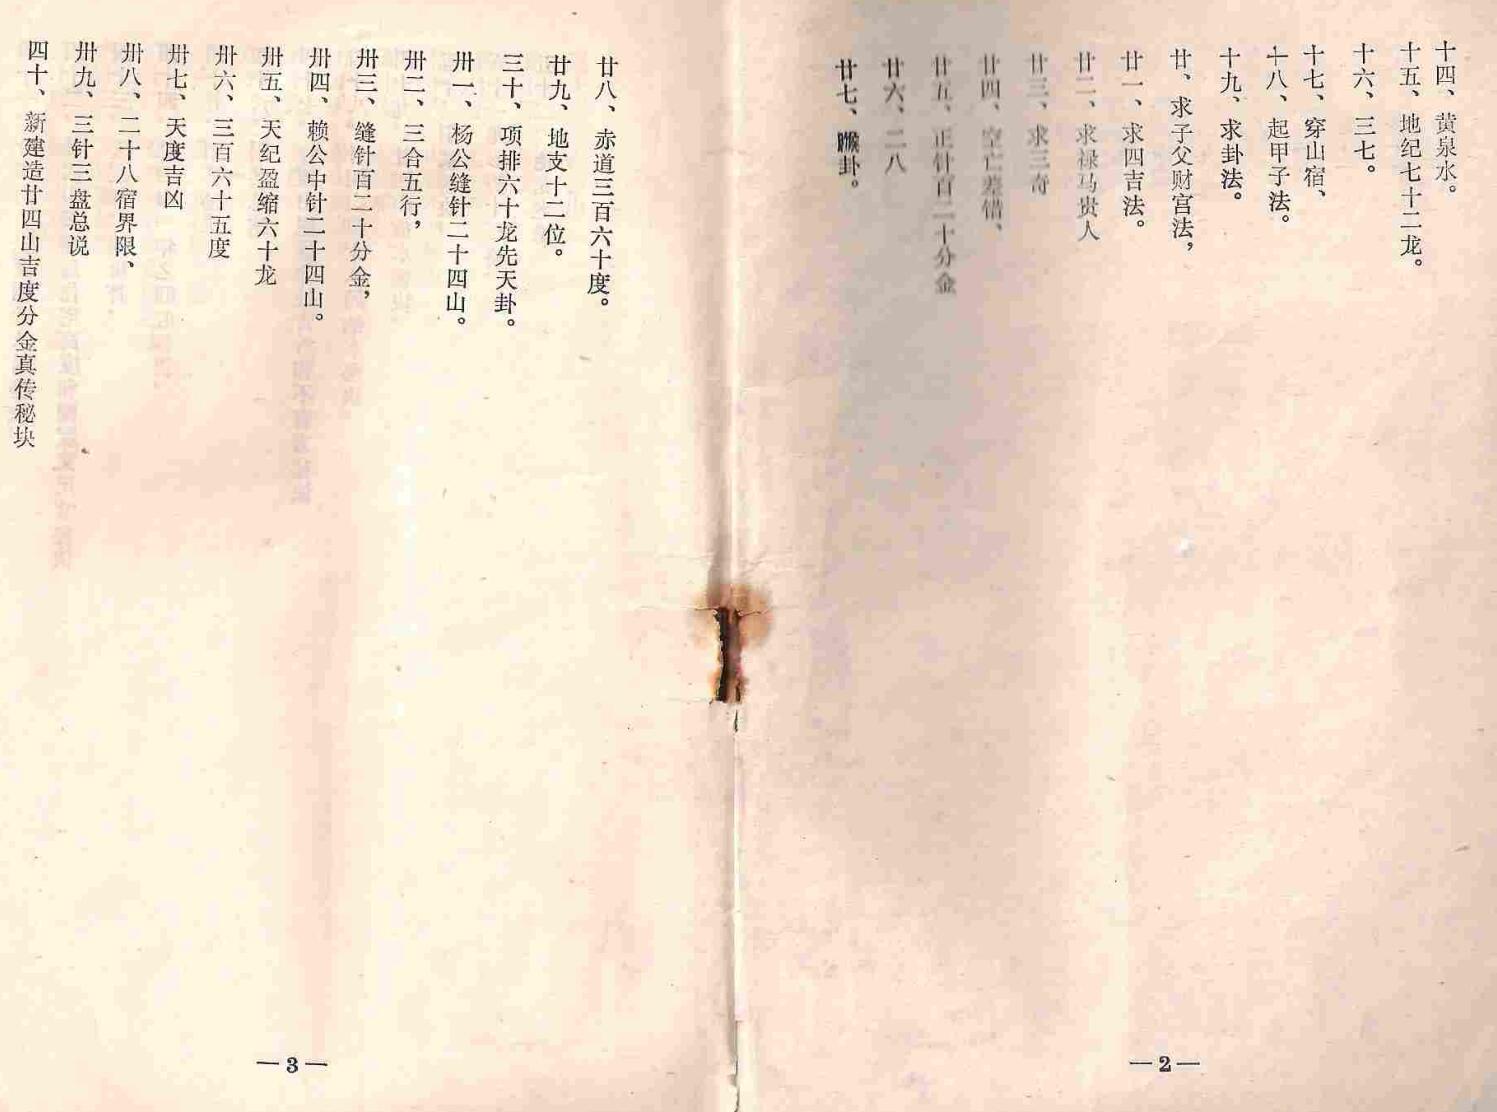 十四、黄泉水。
十五、地纪七十二龙。
十六、三七。
十七、穿山宿、
十八、起甲子法。
十九、求卦法。
廿、求子父财宫法，
廿一、求四吉法。
廿二、求禄马贵人
廿三、求三奇
廿四、空亡差错、
廿五、正针百二十分金
廿六、二八
廿七、卦。
—2—
廿八、赤道三百六十度。
廿九、地支十二位。
三十、项排六十龙先天卦。
卅一、杨公缝针二十四山。
卅二、三合五行，
卅三、缝针百二十分金，
卅四、赖公中针二十四山。
卅五、天纪盈缩六十龙
卅六、三百六十五度
卅七、天度吉凶
卅八、二十八宿界限、
卅九、三针三盘总说
四十、新建造廿四山吉度分金真传秘块
—3—